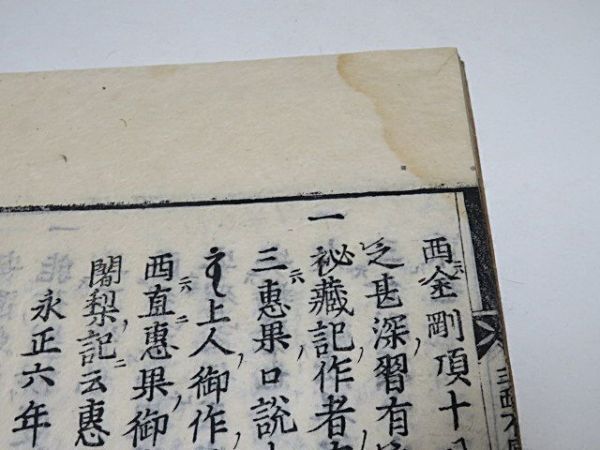 西金剛頂十八
之甚深習有
一 祕藏記作者
三惠果口說
上人御作
西直惠果御
闍梨記云惠
永正六年